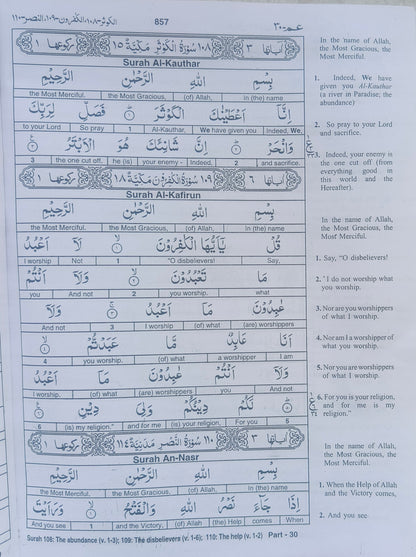 الكوثر-١٠٨، الكٰفرون-١٠٩، النصر-١١٠
857
عـمّ-٣٠
اٰیاتها ٣
١٠٨ سُوْرَةُ الْكَوْثَرِ مَكِّيَّةٌ ١٥
رکوعها ١
Surah Al-Kauthar
بِسْمِ اللّٰهِ الرَّحْمٰنِ الرَّحِيْمِ
In (the) name (of) Allah, the Most Gracious, the Most Merciful.
اِنَّاۤ اَعْطَيْنٰكَ الْكَوْثَرَ ۞ فَصَلِّ لِرَبِّكَ
Indeed, We have given you Al-Kauthar, 1 So pray to your Lord
وَانْحَرْ ۞ اِنَّ شَانِئَكَ هُوَ الْاَبْتَرُ ۞
and sacrifice. 2 Indeed, your enemy - he (is) the one cut off. 3
اٰیاتها ٦
١٠٩ سُوْرَةُ الْكٰفِرُوْنَ مَكِّيَّةٌ ١٨
رکوعها ١
Surah Al-Kafirun
بِسْمِ اللّٰهِ الرَّحْمٰنِ الرَّحِيْمِ
In (the) name (of) Allah, the Most Gracious, the Most Merciful.
قُلْ يٰۤاَيُّهَا الْكٰفِرُوْنَ ۞ لَاۤ اَعْبُدُ
Say, "O disbelievers! 1 Not I worship
مَا تَعْبُدُوْنَ ۞ وَلَاۤ اَنْتُمْ
what you worship. 2 And not you
عٰبِدُوْنَ مَاۤ اَعْبُدُ ۞ وَلَاۤ
(are) worshippers (of) what I worship. 3 And not
اَنَا عَابِدٌ مَّا عَبَدْتُّمْ ۞
I am a worshipper (of) what you worship. 4
وَلَاۤ اَنْتُمْ عٰبِدُوْنَ مَاۤ اَعْبُدُ
And not you (are) worshippers (of) what I worship.
۞ لَكُمْ دِيْنُكُمْ وَلِيَ دِيْنِ ۞
5 For you (is) your religion, and for me (is) my religion." 6
اٰیاتها ٣
١١٠ سُوْرَةُ النَّصْرِ مَدَنِيَّةٌ ١١٤
رکوعها ١
Surah An-Nasr
بِسْمِ اللّٰهِ الرَّحْمٰنِ الرَّحِيْمِ
In (the) name (of) Allah, the Most Gracious, the Most Merciful.
اِذَا جَآءَ نَصْرُ اللّٰهِ وَالْفَتْحُ ۞ وَرَاَيْتَ
When comes (the) Help (of) Allah and the Victory, 1 And you see
Surah 108: The abundance (v. 1-3); 109: The disbelievers (v. 1-6); 110: The help (v. 1-2) Part - 30
In the name of Allah,
the Most Gracious, the
Most Merciful.
1. Indeed, We have
given you Al-Kauthar
(a river in Paradise; the
abundance)
2. So pray to your Lord
and sacrifice.
3. Indeed, your enemy is
the one cut off (from
everything good in
this world and the
Hereafter).
In the name of Allah,
the Most Gracious, the
Most Merciful.
1. Say, "O disbelievers!
2. "I do not worship what
you worship.
3. Nor are you worshippers
of what I worship.
4. Nor am I a worshipper of
what you worship.
5. Nor you are worshippers
of what I worship.
6. For you is your religion,
and for me is my
religion."
In the name of Allah,
the Most Gracious, the
Most Merciful.
1. When the Help of Allah
and the Victory comes,
2. And you see